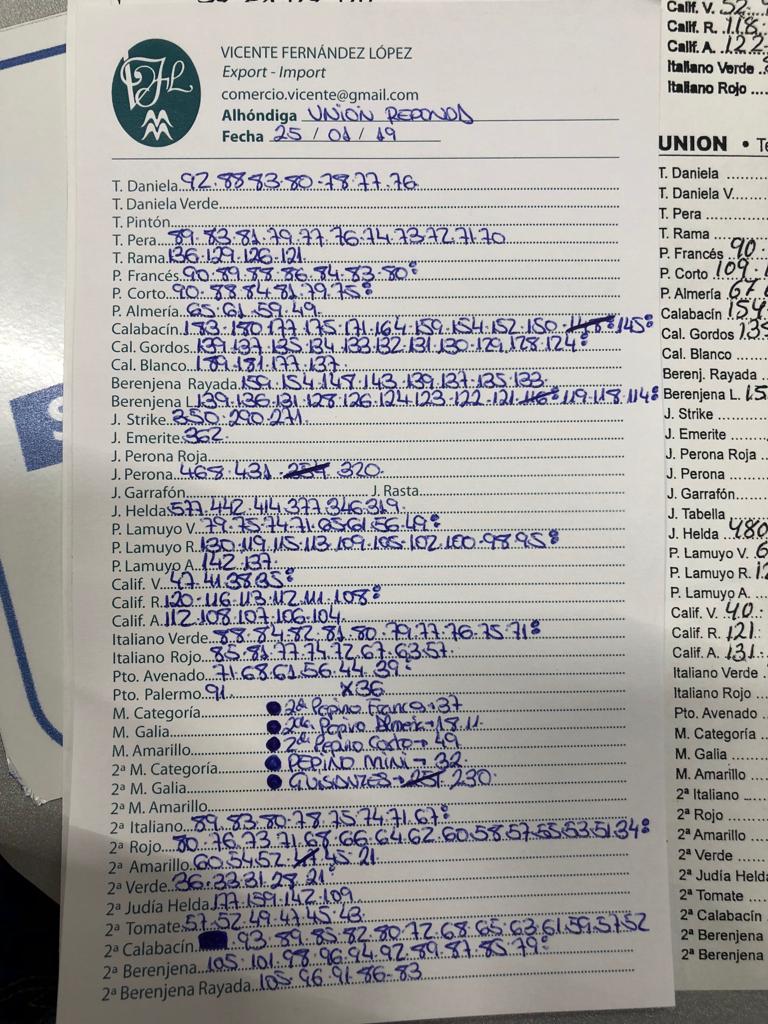 VICENTE FERNÁNDEZ LÓPEZ
Export - Import
comercio.vicente@gmail.com
Alhóndiga UNION REDONDA
Fecha 25 / 01 / 19
T. Daniela 92.88 83.80.78.77.76
T. Daniela Verde
T. Pintón
T. Pera 89.83.81.79.77.76.74.73.72.71.70
T. Rama 136.129.126.121
P. Francés 90.89.88.86.84.83.80
P. Corto 90.88.84.81.79.75
P. Almería 65.61.59.49
Calabacín 183.180.177.175.171.164.159.154.152.150 145
Cal. Gordos 139.137.135.134.133.132.131.130.129.128.124
Cal. Blanco 189.181.177.137
Berenjena Rayada 159.154.148.143.139.137.135.133
Berenjena L. 139.136.131.128.126.124.123.122.121 119.118.114
J. Strike 350.290.271
J. Emerite 362
J. Perona Roja
J. Perona 468.431 320
J. Garrafón J. Rasta
J. Helda 577.442.414.377.346.319
P. Lamuyo V. 79.75.74.71.65.61.56.49
P. Lamuyo R. 130.119.115.113.109.105.102.100.98.95
P. Lamuyo A. 142.137
Calif. V. 47.41.38.35
Calif. R. 120.116.113.112.111.108
Calif. A. 112.108.107.106.104
Italiano Verde 88.84.82.81.80.79.77.76.75.71
Italiano Rojo 85.81.77.74.72.67.63.57
Pto. Avenado 71.68.61.56.44.39
Pto. Palermo 91 x36
M. Categoría 2ª Pepino Frances 37
M. Galia 2ª Pepino Almeria 18.11
M. Amarillo 2ª Pepino Corto 49
2ª M. Categoría PEPINO MINI 32
2ª M. Galia GUISANTES 230
2ª M. Amarillo
2ª Italiano 89.83.80.78.75.74.71.67
2ª Rojo 80.76.73.71.68.66.64.62.60.58.57.55.53.51.34
2ª Amarillo 60.54.52 45.21
2ª Verde 36.33.31.28.21
2ª Judía Helda 177.159.142.109
2ª Tomate 57.52.49.47.45.43
2ª Calabacín 93.89.85.82.80.72.68.65.63.61.59.57.52
2ª Berenjena 105.101.98.96.94.92.89.87.85.79
2ª Berenjena Rayada 105.96.91.86.83
Calif. V. 52
Calif. R. 118
Calif. A. 122
Italiano Verde
Italiano Rojo
UNION
T. Daniela
T. Daniela V.
T. Pera
T. Rama
P. Francés 90
P. Corto 109
P. Almería 67
Calabacín 154
Cal. Gordos
Cal. Blanco
Berenj. Rayada
Berenjena L.
J. Strike
J. Emerite
J. Perona Roja
J. Perona
J. Garrafón
J. Tabella
J. Helda 480
P. Lamuyo V.
P. Lamuyo R.
P. Lamuyo A.
Calif. V. 40
Calif. R. 121
Calif. A. 131
Italiano Verde
Italiano Rojo
Pto. Avenado
M. Categoría
M. Galia
M. Amarillo
2ª Italiano
2ª Rojo
2ª Amarillo
2ª Verde
2ª Judía Helda
2ª Tomate
2ª Calabacín
2ª Berenjena
2ª Berenjena